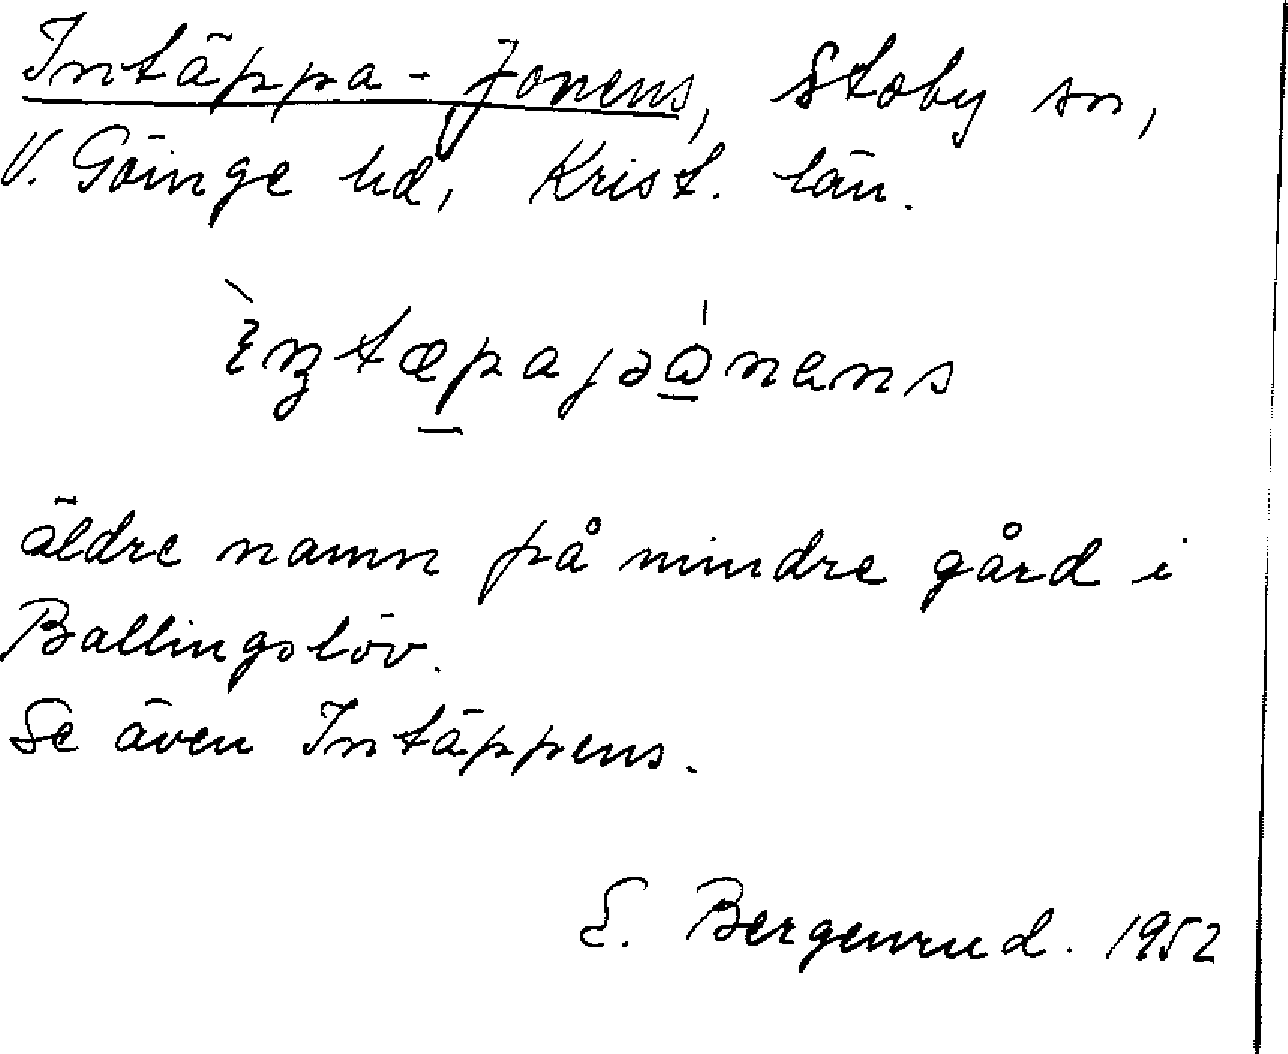 Intäppa-Jonens, Stoby sn,
V. Göinge hd, Krist. län.
äldre namn på mindre gård i
Ballingslöv.
Se även Intäppens.
E. Bergenrud. 1952